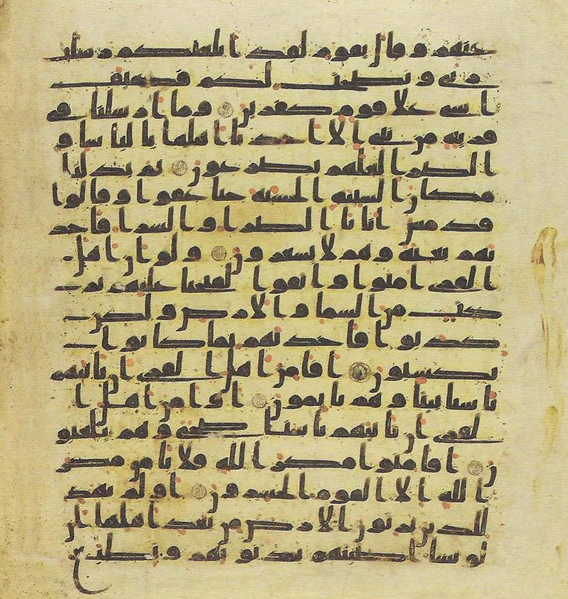 عنهم و قال يقوم لقد ابلغتكم رسلت
ربي و نصحت لكم فكيف
اسى على قوم كفرين وما ارسلنا في
قرية من نبي الا اخذنا اهلها بالباسا و
الضرا لعلهم يضرعون ثم بدلنا
مكان السيئة الحسنة حتى عفوا و قالوا
قد مس ابانا الضرا و السرا فاخذ
نهم بغتة وهم لا يشعرون و لو ان اهل
القرى امنوا و اتقوا لفتحنا عليهم بر
كت من السما و الارض و لكن
كذبوا فاخذنهم بما كانوا
يكسبون افامن اهل القرى ان ياتيهم
باسنا بيتا و هم نايمون او امن اهل ا
لقرى ان ياتيهم باسنا ضحى و هم يلعبو
ن افامنوا مكر الله فلا يامن مكر
الله الا القوم الخسرون اولم يهد
للذين يرثون الارض من بعد اهلها ان
لو نشا اصبنهم بذنوبهم و نطبع